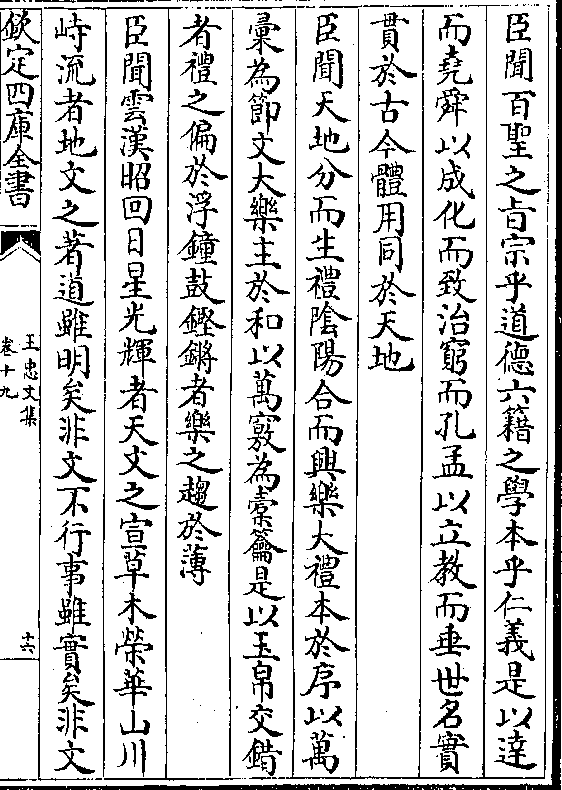 臣聞百聖之旨宗乎道德六籍之學本乎仁義是以達
而堯舜以成化而致治窮而孔孟以立教而垂世名實
貫於古今體用同於天地
臣聞天地分而生禮陰陽合而興樂大禮本於序以萬
彙為節文大樂主於和以萬竅為橐籥是以玉帛交錯
者禮之偏於浮鐘鼓鏗鏘者樂之趨於薄
臣聞雲漢昭回日星光輝者天文之宣草木榮華山川
峙流者地文之著道雖明矣非文不行事雖實矣非文
欽定四庫全書
王忠文集
卷十九
十六